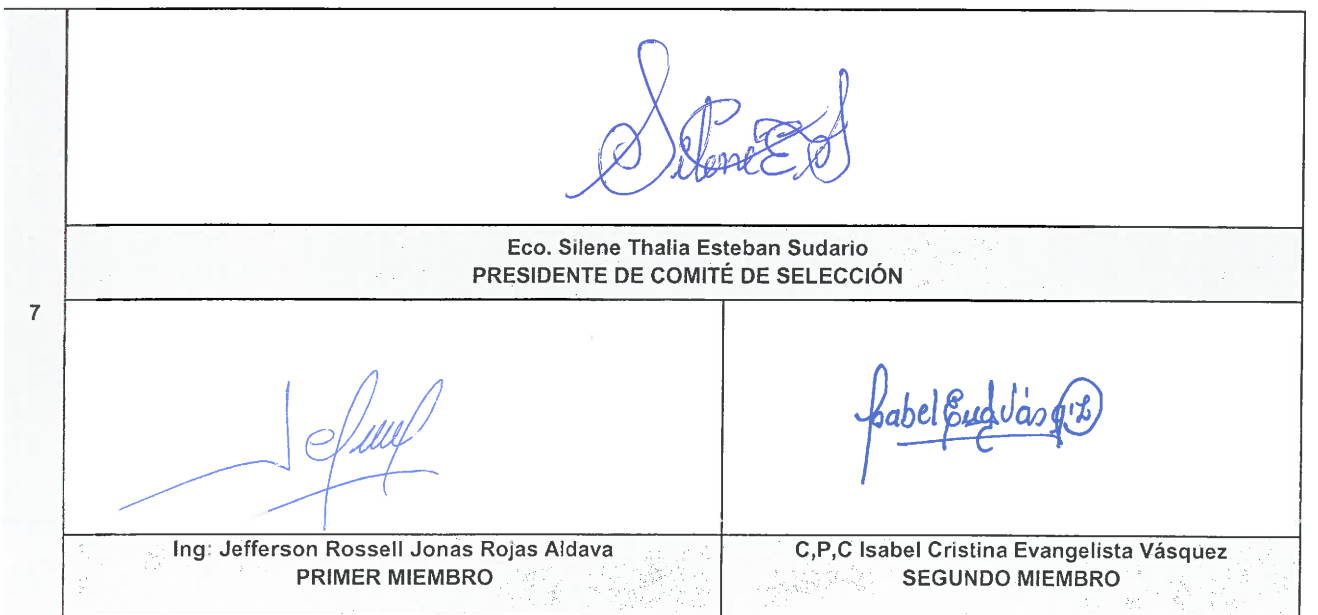 Silene E S
Eco. Silene Thalia Esteban Sudario
PRESIDENTE DE COMITÉ DE SELECCIÓN
7
Ing: Jefferson Rossell Jonas Rojas Aldava
PRIMER MIEMBRO
C,P,C Isabel Cristina Evangelista Vásquez
SEGUNDO MIEMBRO